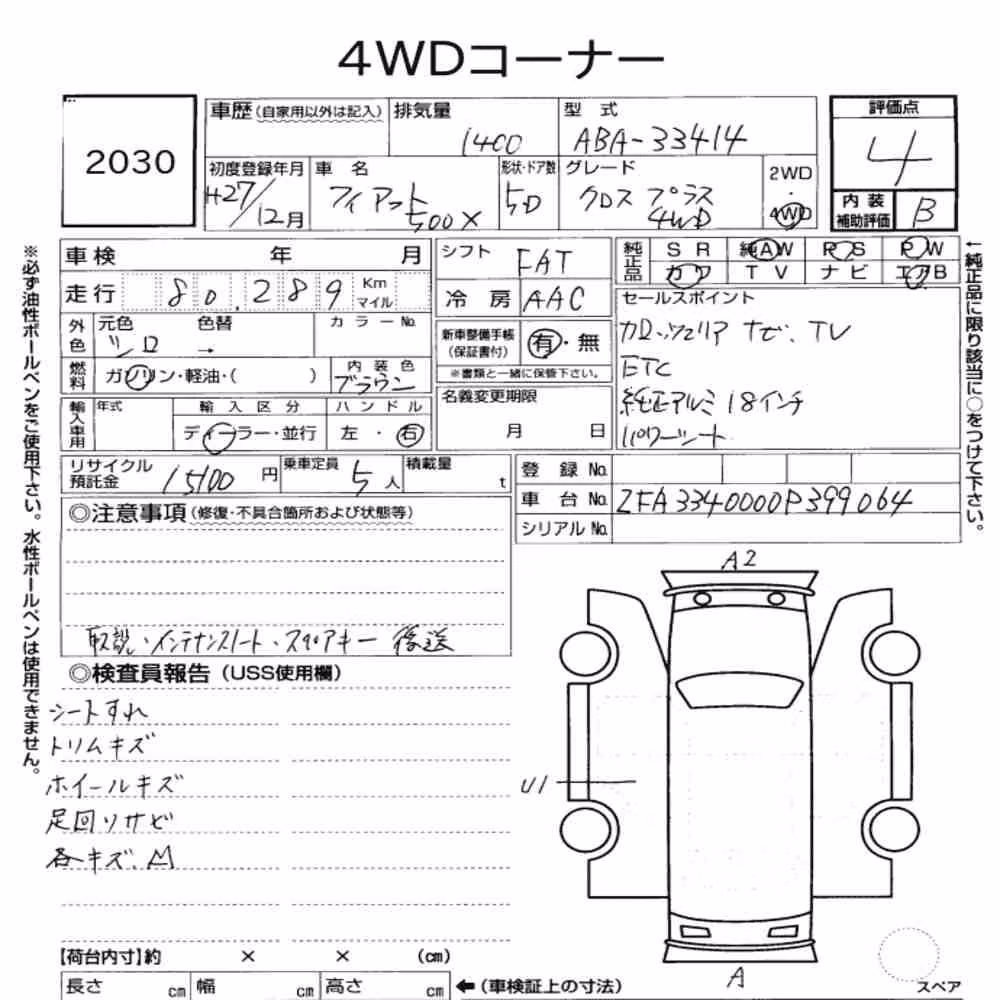 4WDコーナー
2030
車歴(自家用以外は記入) 排気量 1400 型式 ABA-33414
評価点 4
初度登録年月 H27/12月 車名 フィアット500X 形状・ドア数 5D グレード クロス プラス 4WD 2WD・4WD
内装補助評価 B
車検 年 月
シフト FAT
純正品 SR 純AW PS PW
カワ TV ナビ エアB
走行 80,289 Km マイル
冷房 AAC
セールスポイント
カロッツェリア ナビ、TV
ETC
純正アルミ 18インチ
パワーシート
外色 元色 シロ 色替 → カラーNo.
新車整備手帳(保証書付) 有・無
※書類と一緒に保管下さい。
燃料 ガソリン・軽油・( ) 内装色 ブラウン
名義変更期限 月 日
輸入車用 年式 輸入区分 ディーラー・並行 ハンドル 左・右
リサイクル預託金 15100円 乗車定員 5人 積載量 t
登録No.
車台No. ZFA3340000P399064
シリアルNo.
◎注意事項(修復・不具合箇所および状態等)
取説・メンテナンスノート・スペアキー 後送
◎検査員報告(USS使用欄)
シートすれ
トリムキズ
ホイールキズ
足回りサビ
各キズ、凹
A2
U1
A
スペア
【荷台内寸】約 × × (cm)
長さ cm 幅 cm 高さ cm ←(車検証上の寸法)
※必ず油性ボールペンをご使用下さい。水性ボールペンは使用できません。
←純正品に限り該当に○をつけて下さい。